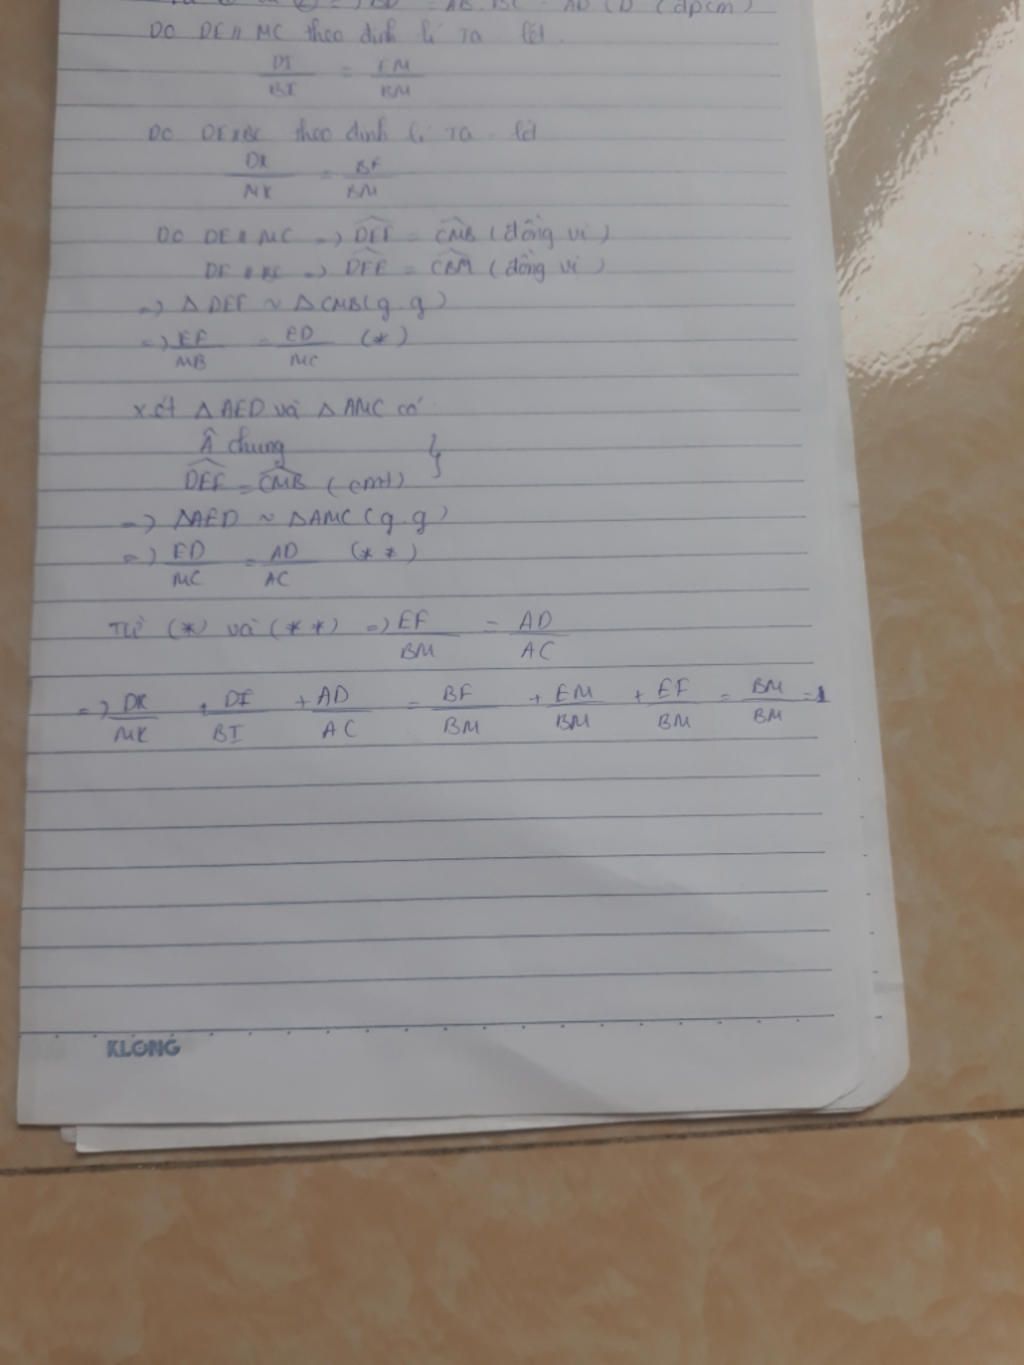 BD = AB.BC - AD.CD (đpcm)
Do DE // MC theo định lí Ta lét
DI/BI = EM/BM
Do DF // BC theo định lí Ta lét
DK/MK = BF/BM
Do DE // MC => DEF = CMB (đồng vị)
DF // BC => DFE = CBM (đồng vị)
=> Δ DEF ~ Δ CMB (g.g)
=> EF/MB = ED/MC (*)
xét Δ AED và Δ AMC có
Â chung }
DEF = CMB (cmt)
=> ΔAED ~ ΔAMC (g.g)
=> ED/MC = AD/AC (**)
Từ (*) và (**) => EF/BM = AD/AC
=> DK/MK + DI/BI + AD/AC = BF/BM + EM/BM + EF/BM = BM/BM = 1
KLONG